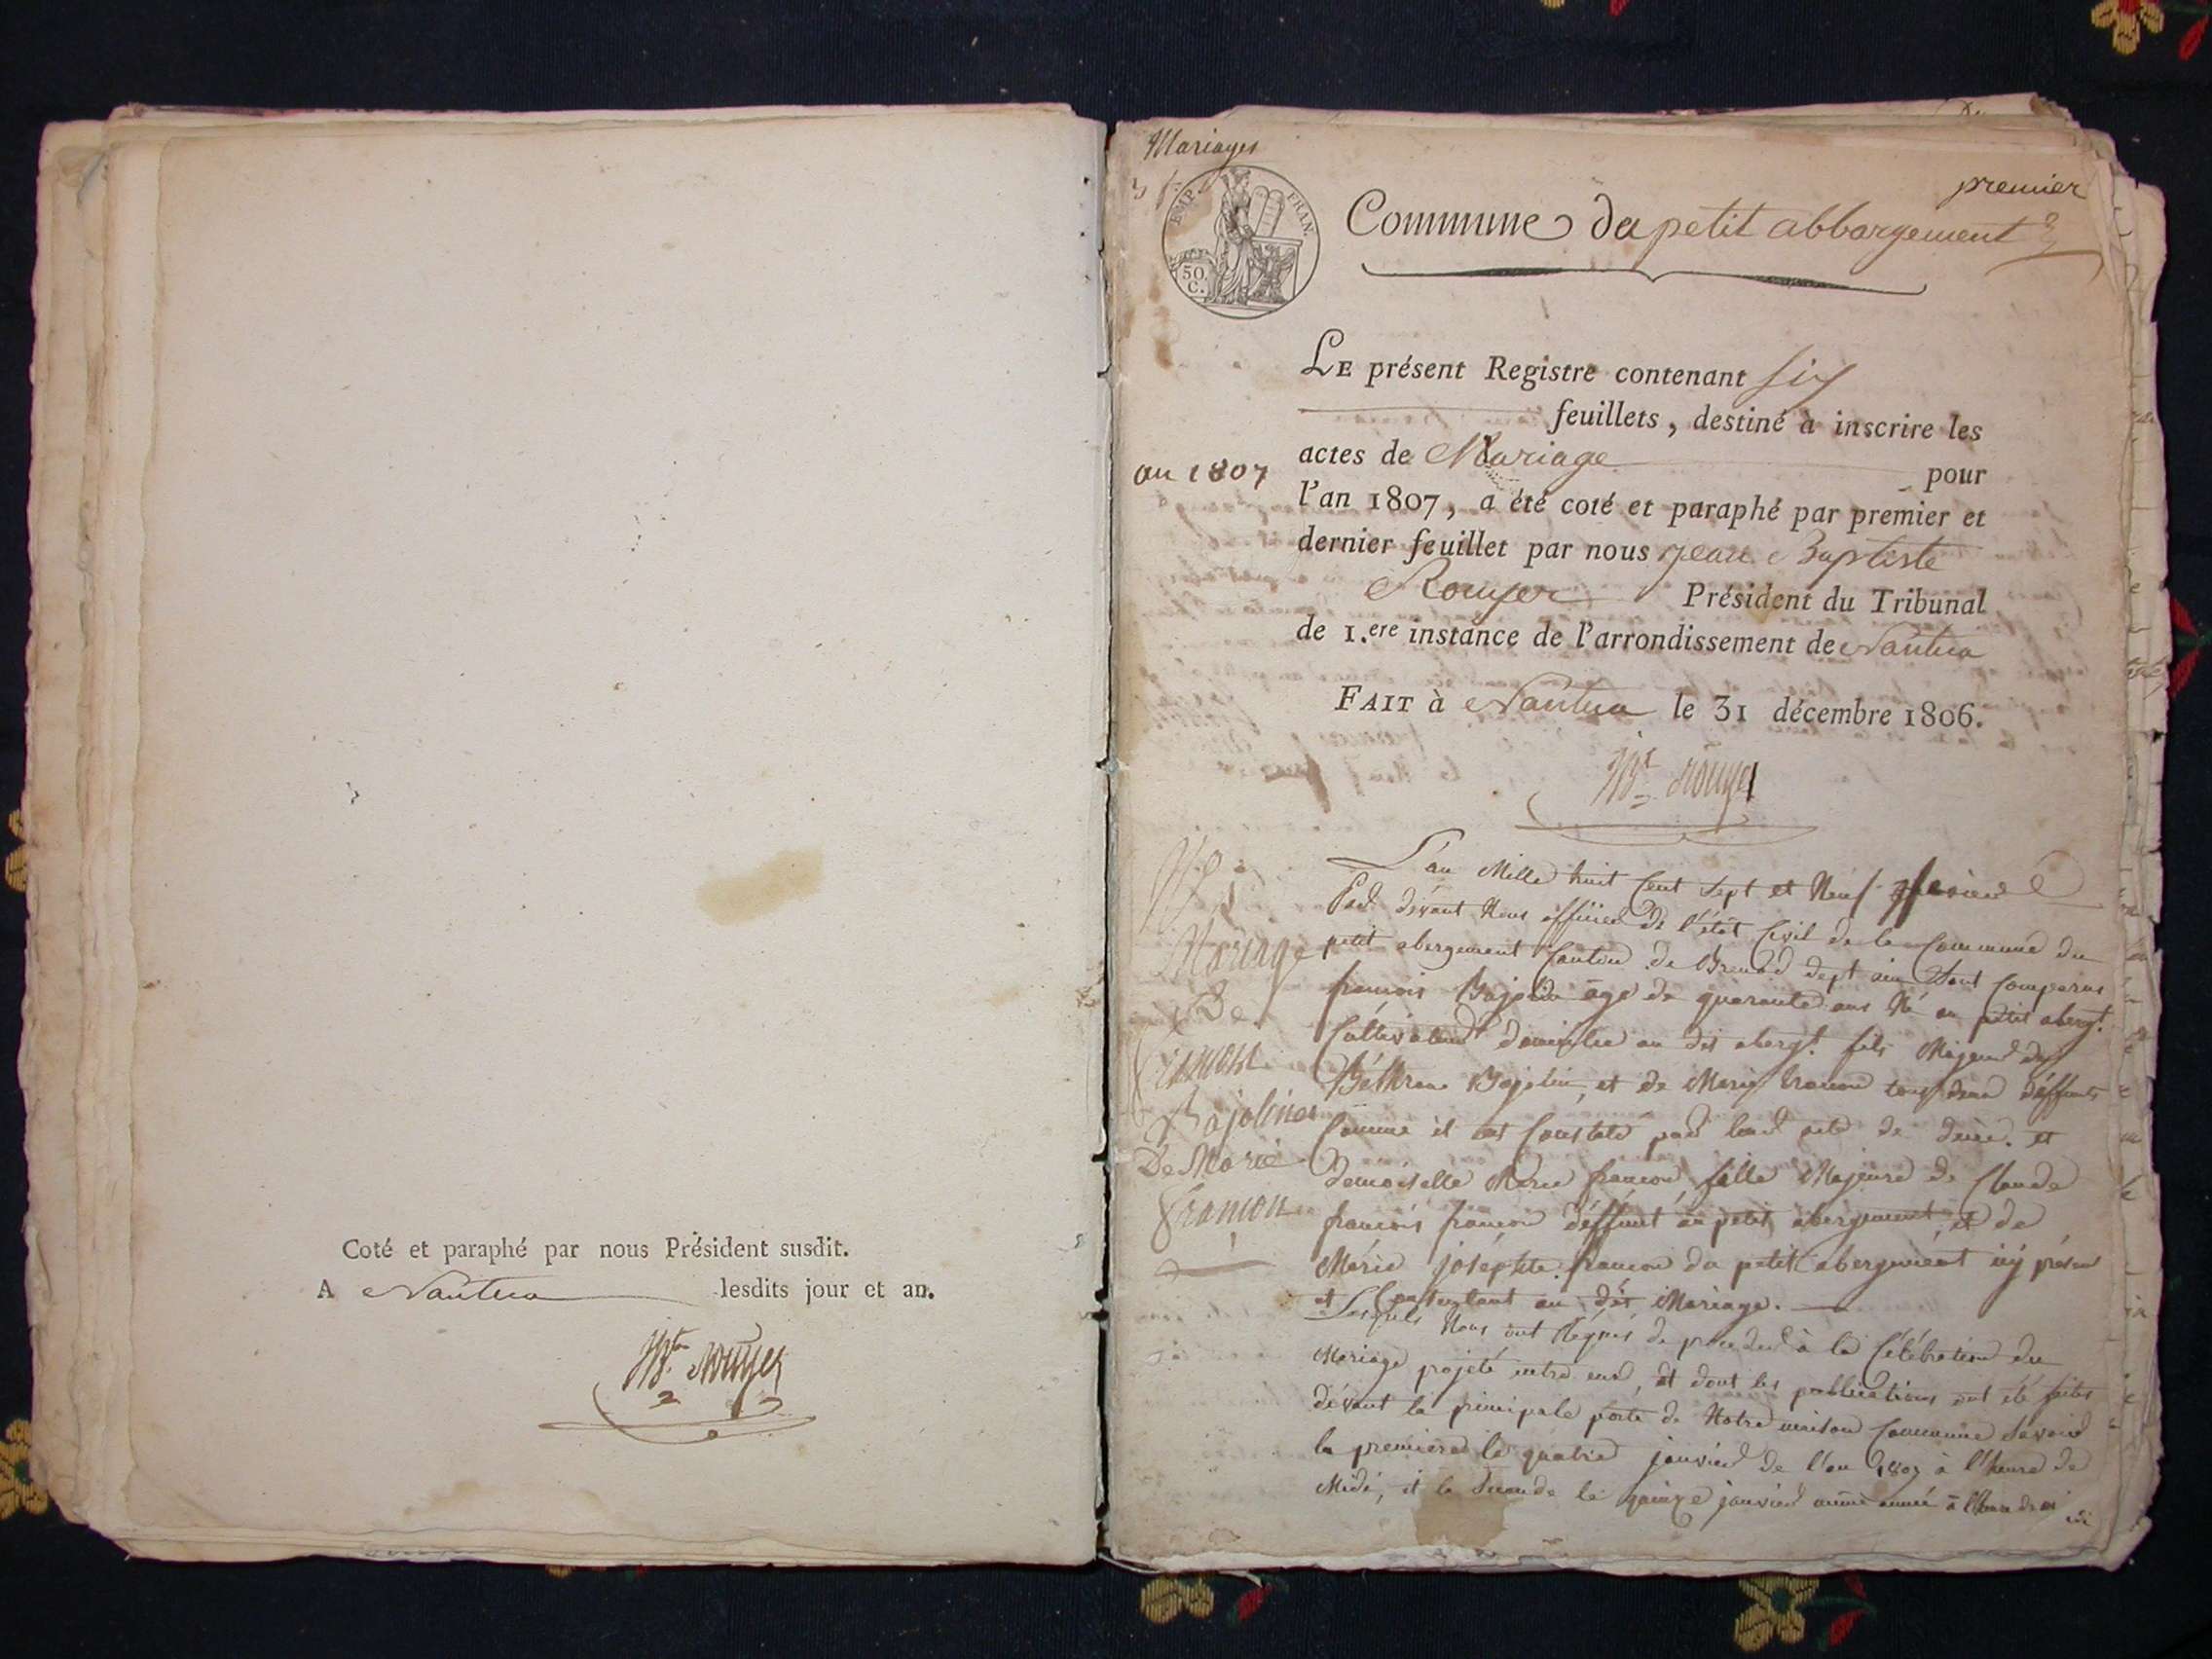 Coté et paraphé par nous Président susdit.
A Nantua lesdits jour et an.
Jn Bte Rouyer
Mariages
premier
EMP. FRAN.
50.
C.
Commune du petit abbargement
LE présent Registre contenant six
feuillets, destiné à inscrire les
actes de Mariage pour
an 1807
l'an 1807, a été coté et paraphé par premier et
dernier feuillet par nous jean Baptiste
Rouyer Président du Tribunal
de 1.ere instance de l'arrondissement de Nantua
FAIT à Nantua le 31 décembre 1806.
Rouyer
Mariage
De
Bajolin
De Marie
francon
L'an Mille huit Cent Sept et Neuf fevrier
Par devant Nous officier de l'état Civil de la Commune du
petit abergement Canton de Brenod dept ain Sont Comparus
francois Bajolin âgé de quarante ans Né au petit aberg.t
Cultivateur domicilié au dit aberg.t fils Majeur de
Bajolin, et de Marie francon tous deux déffunts
Comme il est Constaté par leur acte de décè. et
Demoiselle Marie francon fille Majeure de Claude
francois francon déffunt au petit abergement, et de
Marie joséphte francon du petit abergement icy présent
et Consentant au dit Mariage.
Lesquels Nous ont Réquis de proceder à la Célébration du
Mariage projeté entre eux, et dont les publications ont été faites
dévant la principale porte de Notre maison Commune Savoir
la premiere le quatre janvier de l'an 1807 à l'heure de
Midi, et la Seconde le janvier même année à l'heure de midi